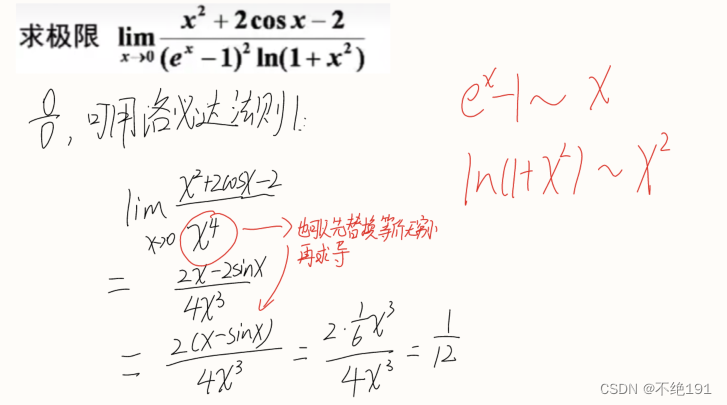 求极限 lim x→0 (x² + 2cos x − 2) / ((eˣ − 1)² ln(1 + x²))
eˣ−1 ~ x
0/0, 可用洛必达法则1:
ln(1+x²) ~ x²
lim x→0 (x²+2cosx−2) / x⁴
也可以先替换等价无穷小
再求导
= (2x−2sinx) / 4x³
= 2(x−sinx) / 4x³ = 2·1/6 x³ / 4x³ = 1/12
CSDN @不绝191